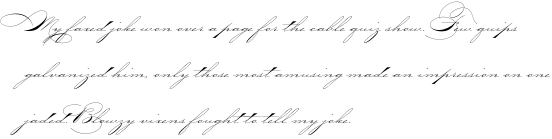 My faxed joke won over a page for the cable quiz show. Few quips
galvanized him, only those most amusing made an impression on one
jaded. Blowzy vixens fought to tell my joke.